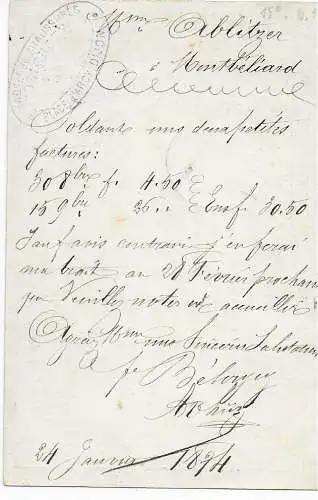 Mme Ablitzer
à Montbéliard
Soldant mes deux petites
factures:
30 8bre f. 4.50
15 9bre 26 .. Ensf. 30.50
Sauf avis contraire j'en ferai
ma trait au 28 Février prochain
que Veuillez noter et accueillir
Agréez Mme mes Sincères Salutations
24 Janvier 1894